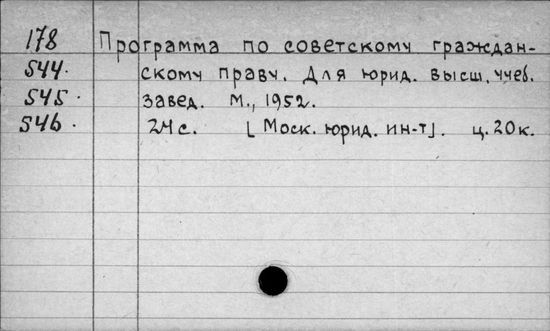 178 Программа по советскому граждан-
544. скому праву. Для юрид. высш. учеб.
545. завед. М., 1952.
546. 24 с. [Моск. юрид. ин-т]. ц. 20 к.